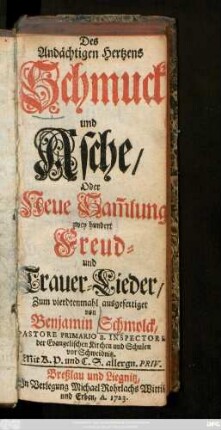 Des
Andächtigen Hertzens
Schmuck
und
Asche/
Oder
Neue Sam̃lung
zwey hundert
Freud-
und
Trauer-Lieder/
Zum vierdtenmahl ausgefertiget
von
Benjamin Schmolck,
PASTORE PRIMARIO u. INSPECTORE
der Evangelischen Kirchen und Schulen
vor Schweidnitz.
Mit K. P. und C. S. allergn. PRIV.
Breßlau und Liegnitz,
In Verlegung Michael Rohrlachs Wittib
und Erben, A. 1723.